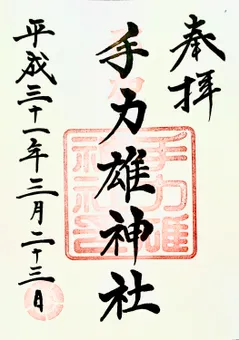 奉拝
手力雄神社
平成三十一年三月二十三日
手力雄神社